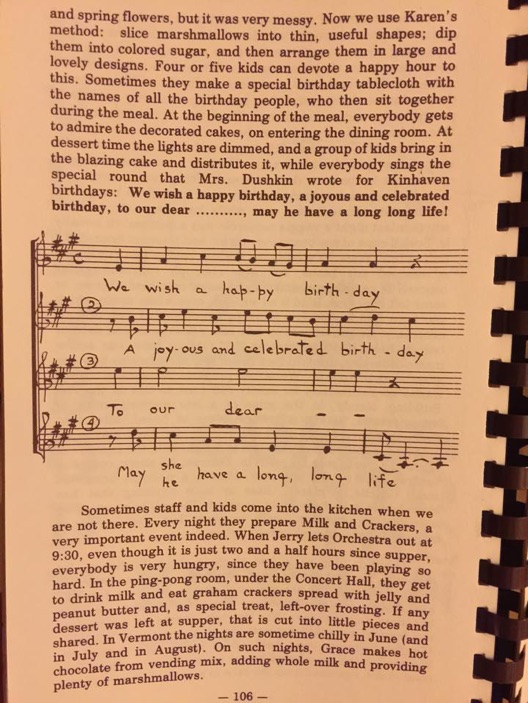 and spring flowers, but it was very messy. Now we use Karen's
method: slice marshmallows into thin, useful shapes; dip
them into colored sugar, and then arrange them in large and
lovely designs. Four or five kids can devote a happy hour to
this. Sometimes they make a special birthday tablecloth with
the names of all the birthday people, who then sit together
during the meal. At the beginning of the meal, everybody gets
to admire the decorated cakes, on entering the dining room. At
dessert time the lights are dimmed, and a group of kids bring in
the blazing cake and distributes it, while everybody sings the
special round that Mrs. Dushkin wrote for Kinhaven
birthdays: We wish a happy birthday, a joyous and celebrated
birthday, to our dear .........., may he have a long long life!
We wish a hap-py birth-day
2
A joy-ous and celebrated birth-day
3
To our dear – –
4
May she he have a long, long life
Sometimes staff and kids come into the kitchen when we
are not there. Every night they prepare Milk and Crackers, a
very important event indeed. When Jerry lets Orchestra out at
9:30, even though it is just two and a half hours since supper,
everybody is very hungry, since they have been playing so
hard. In the ping-pong room, under the Concert Hall, they get
to drink milk and eat graham crackers spread with jelly and
peanut butter and, as special treat, left-over frosting. If any
dessert was left at supper, that is cut into little pieces and
shared. In Vermont the nights are sometime chilly in June (and
in July and in August). On such nights, Grace makes hot
chocolate from vending mix, adding whole milk and providing
plenty of marshmallows.
— 106 —